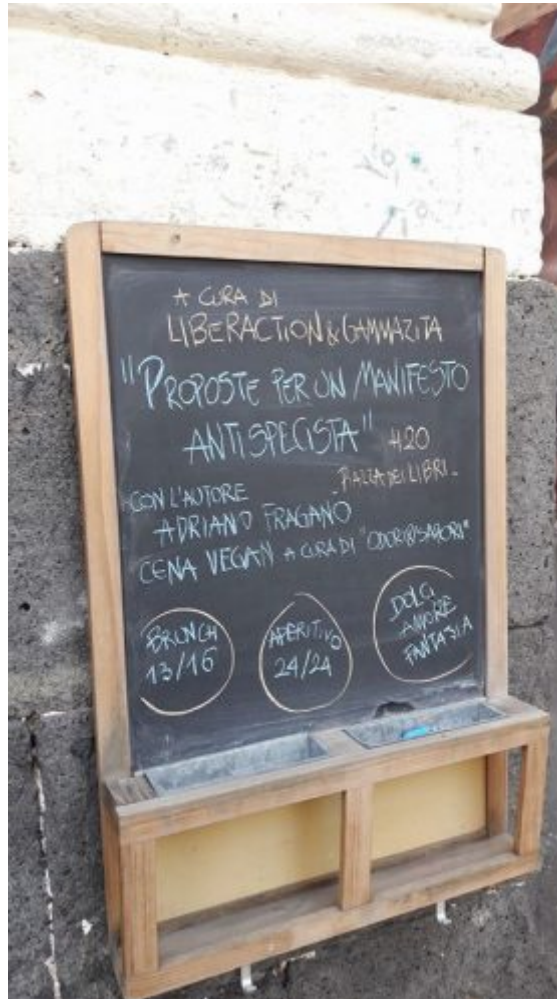 A CURA DI
LIBERACTION & GAMMAZITA
"PROPOSTE PER UN MANIFESTO
ANTISPECISTA"
H20
PIAZZA DEI LIBRI
CON L'AUTORE
ADRIANO FRAGANO
CENA VEGAN A CURA DI "ODORI&SAPORI"
BRUNCH
13/16
APERITIVO
24/24
DOLCI
AMORE
FANTASIA